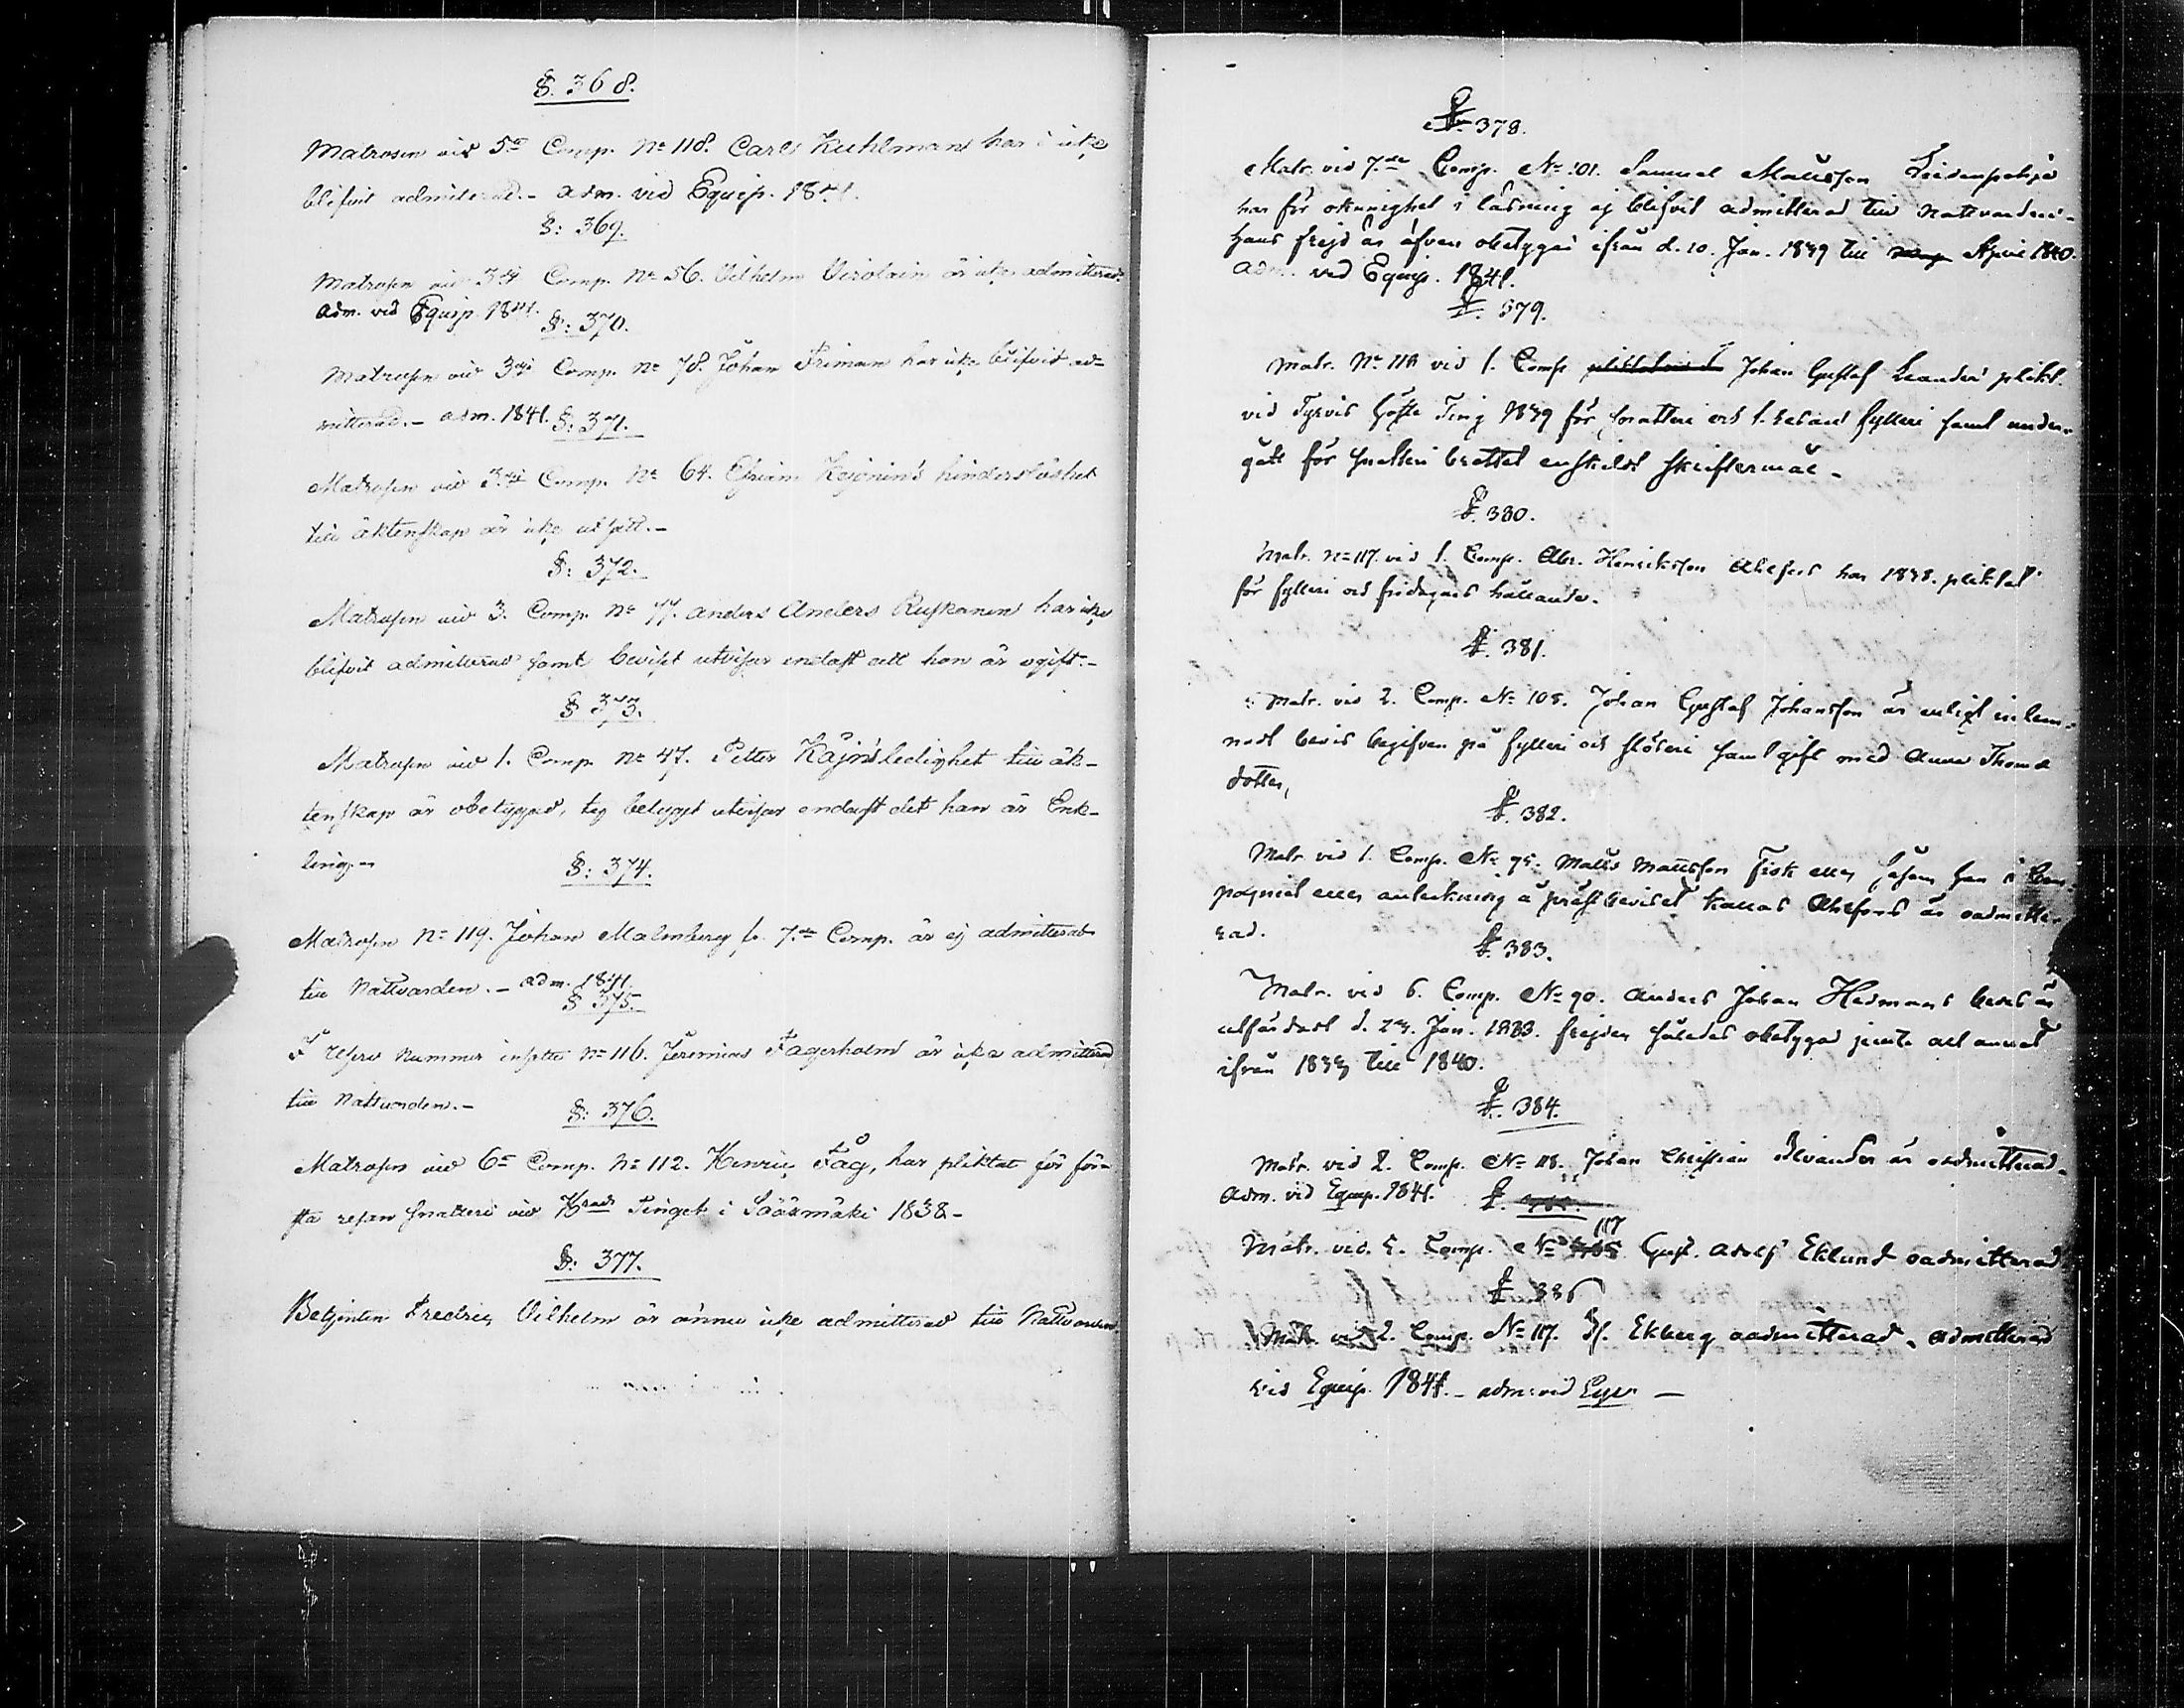 §. 368.
Matrosen vid 5te Comp. No 118. Carl Kuhlman har icke
blifvit admitterad. – adm. vid Equip. 1841.
§: 369.
Matrosen vid 3die Comp. No 56. Vilhelm Virolain är icke admitterad.
adm. vid Equip. 1841.
§: 370.
Matrosen vid 3die Comp. No 78. Johan Friman har icke blifvit ad-
mitterad. – adm. 1841.
§: 371.
Matrosen vid 3die Comp. No 64. Efraim hinderslöshet
till äktenskap är icke
§: 372.
Matrosen vid 3. Comp. No 77. Anders Anders Ruskanen har icke
blifvit admitterad samt beviset utvisar endast att han är ogift. –
§ 373.
Matrosen vid 1. Comp. No 47. Petter ledighet till äk-
tenskap är obetygad, ty betyget utvisar endast det han är Enk-
ling. –
§: 374.
Matrosen No 119. Johan Malmberg fr. 7de Comp. är ej admitterad
till Nattvarden. – adm. 1841.
§ 375.
F nummer No 116. Jeremias Fagerholm är icke admitterad
till Nattvarden. –
§: 376.
Matrosen vid 6te Comp. No 112. Henric Fåg, har pliktat för för-
sta resan snatteri vid Hrads Tinget i Säärmäki 1838 –
§: 377.
Betjenten Fredric Vilhelm är ännu icke admitterad till Nattvarden.
§. 378.
Matr. vid 7de Comp. No 101. Samuel Mattsson
har för okunighet i läsning ej blifvit admitterad till nattvarden.
Hans frejd är äfven obetygad ifrån d. 10. Jan. 1839 till April 1840.
adm. vid Equip. 1841.
§. 379.
Matr. No 118 vid 1. Comp. Johan Gustaf Leander plikt.
vid Tyrvis höste Ting 1839 för snatteri och 1. resan fylleri samt under-
gått för snatteri brottet enskildt skriftermål –
§. 380.
Matr. No 117. vid 1. Comp. Abr. Henriksson Ahlfors har 1838. pliktat
för fylleri och hållande.
§. 381.
Matr. vid 2. Comp. No 105. Johan Gustaf Johansson är enligt inlem-
nadt bevis begifven på fylleri och slöseri samt gift med Anna Thomæ
dotter,
§. 382.
Matr. vid 1. Comp. No 95. Matts Mattsson Fisk eller såsom han i Com-
pagniet eller anteckning å prestbeviset kallas Ahlfors är oadmitte-
rad.
§. 383.
Matr. vid 6. Comp. No 90. Anders Johan Hedmans bevis är
utfärdadt d. 23. Jan. 1833. frejden således obetygad jemte allt annat
ifrån 1833 till 1840.
§. 384.
Matr. vid 2. Comp. No 118. Johan Christian är oadmitterad.
adm. vid Equip. 1841.
§.
Matr. vid. 5. Comp. No 117 Gust. Adolf Eklund oadmitterad
§. 386
Matr. vid 2. Comp. No 117. Ekberg oadmitterad. admitterad
vid Equip. 1841. – adm: vid Equ. –